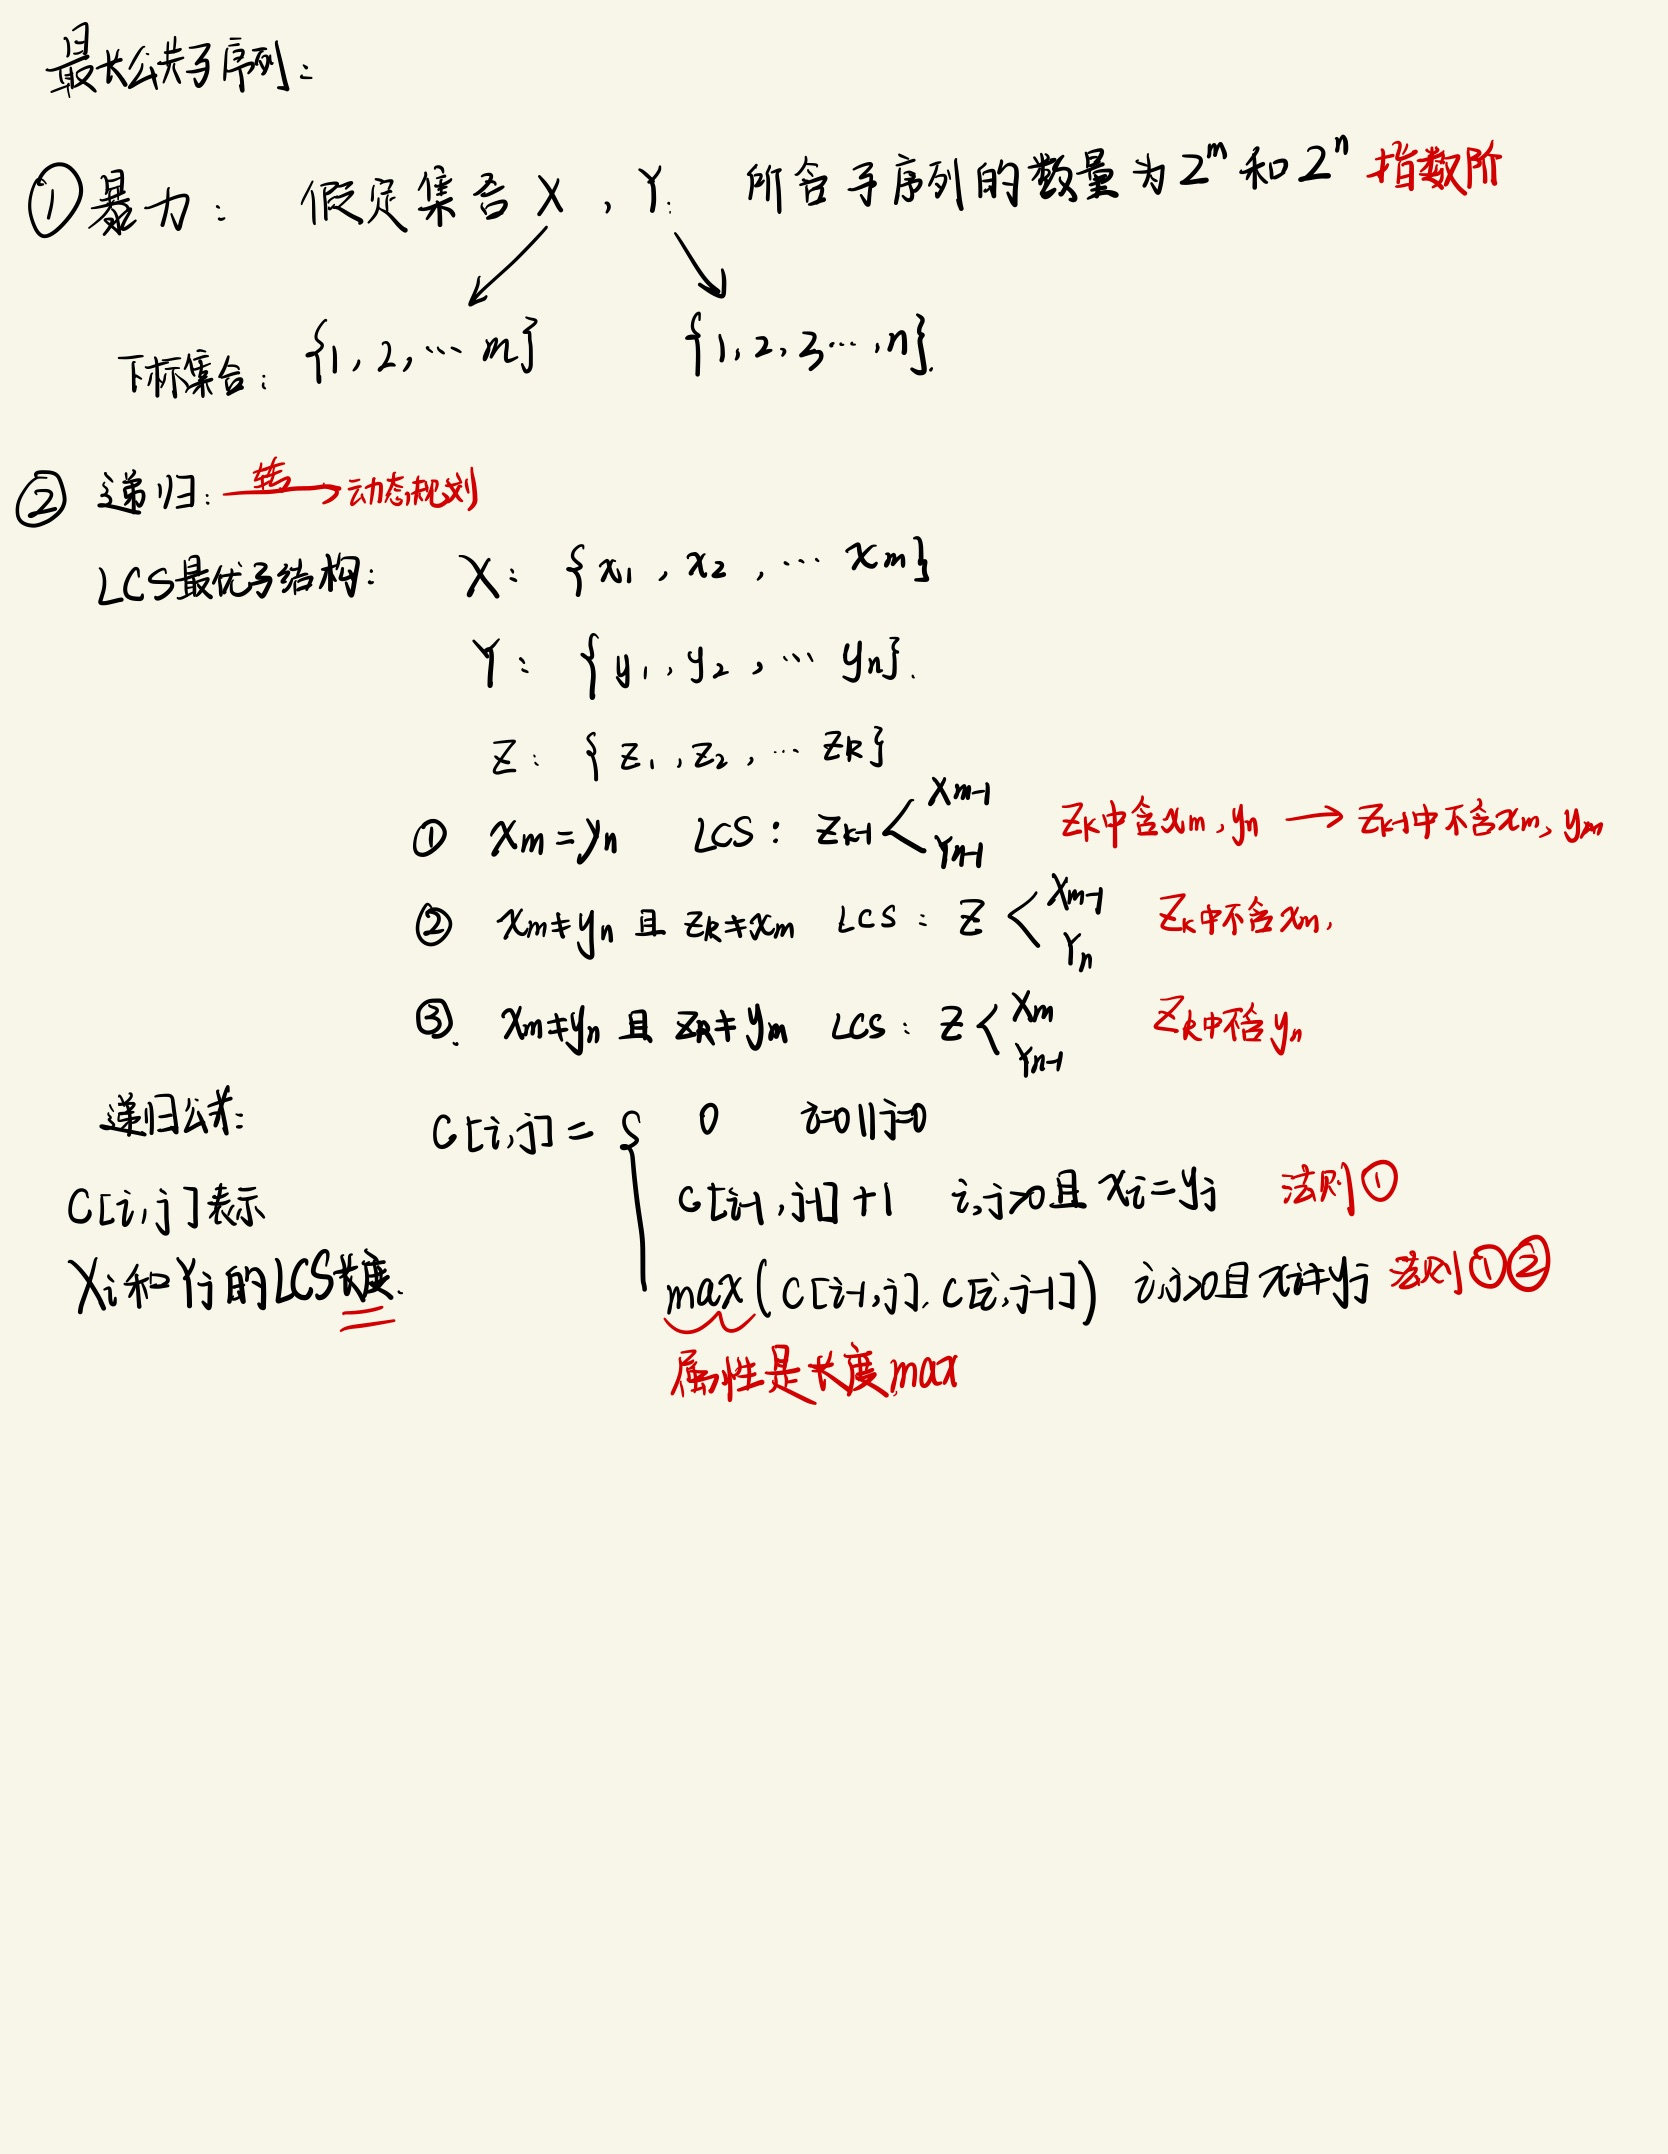 最长公共子序列:
①暴力: 假定集合 X , Y: 所含子序列的数量为 2^m 和 2^n 指数阶
下标集合: {1, 2, … m} {1, 2, 3…, n}.
② 递归: 转 → 动态规划
LCS最优子结构: X: {x₁, x₂, … xm}
Y: {y₁, y₂, … yn}.
Z: {z₁, z₂, … zk}
① xm=yn LCS: Zk-1 < Xm-1 Yn-1 Zk中含xm, yn → Zk-1中不含xm, ym
② xm≠yn 且 zk≠xm LCS: Z < Xm-1 Yn Zk中不含xm,
③. xm≠yn 且 zk≠ym LCS: Z < Xm Yn-1 Zk中不含yn
递归公式: C[i,j] = { 0 i=0||j=0
C[i,j]表示 C[i-1, j-1]+1 i,j>0且 xi=yj 法则①
Xi和Yj的LCS长度. max(C[i-1,j], C[i,j-1]) i,j>0且 xi≠yj 法则①②
属性是长度max